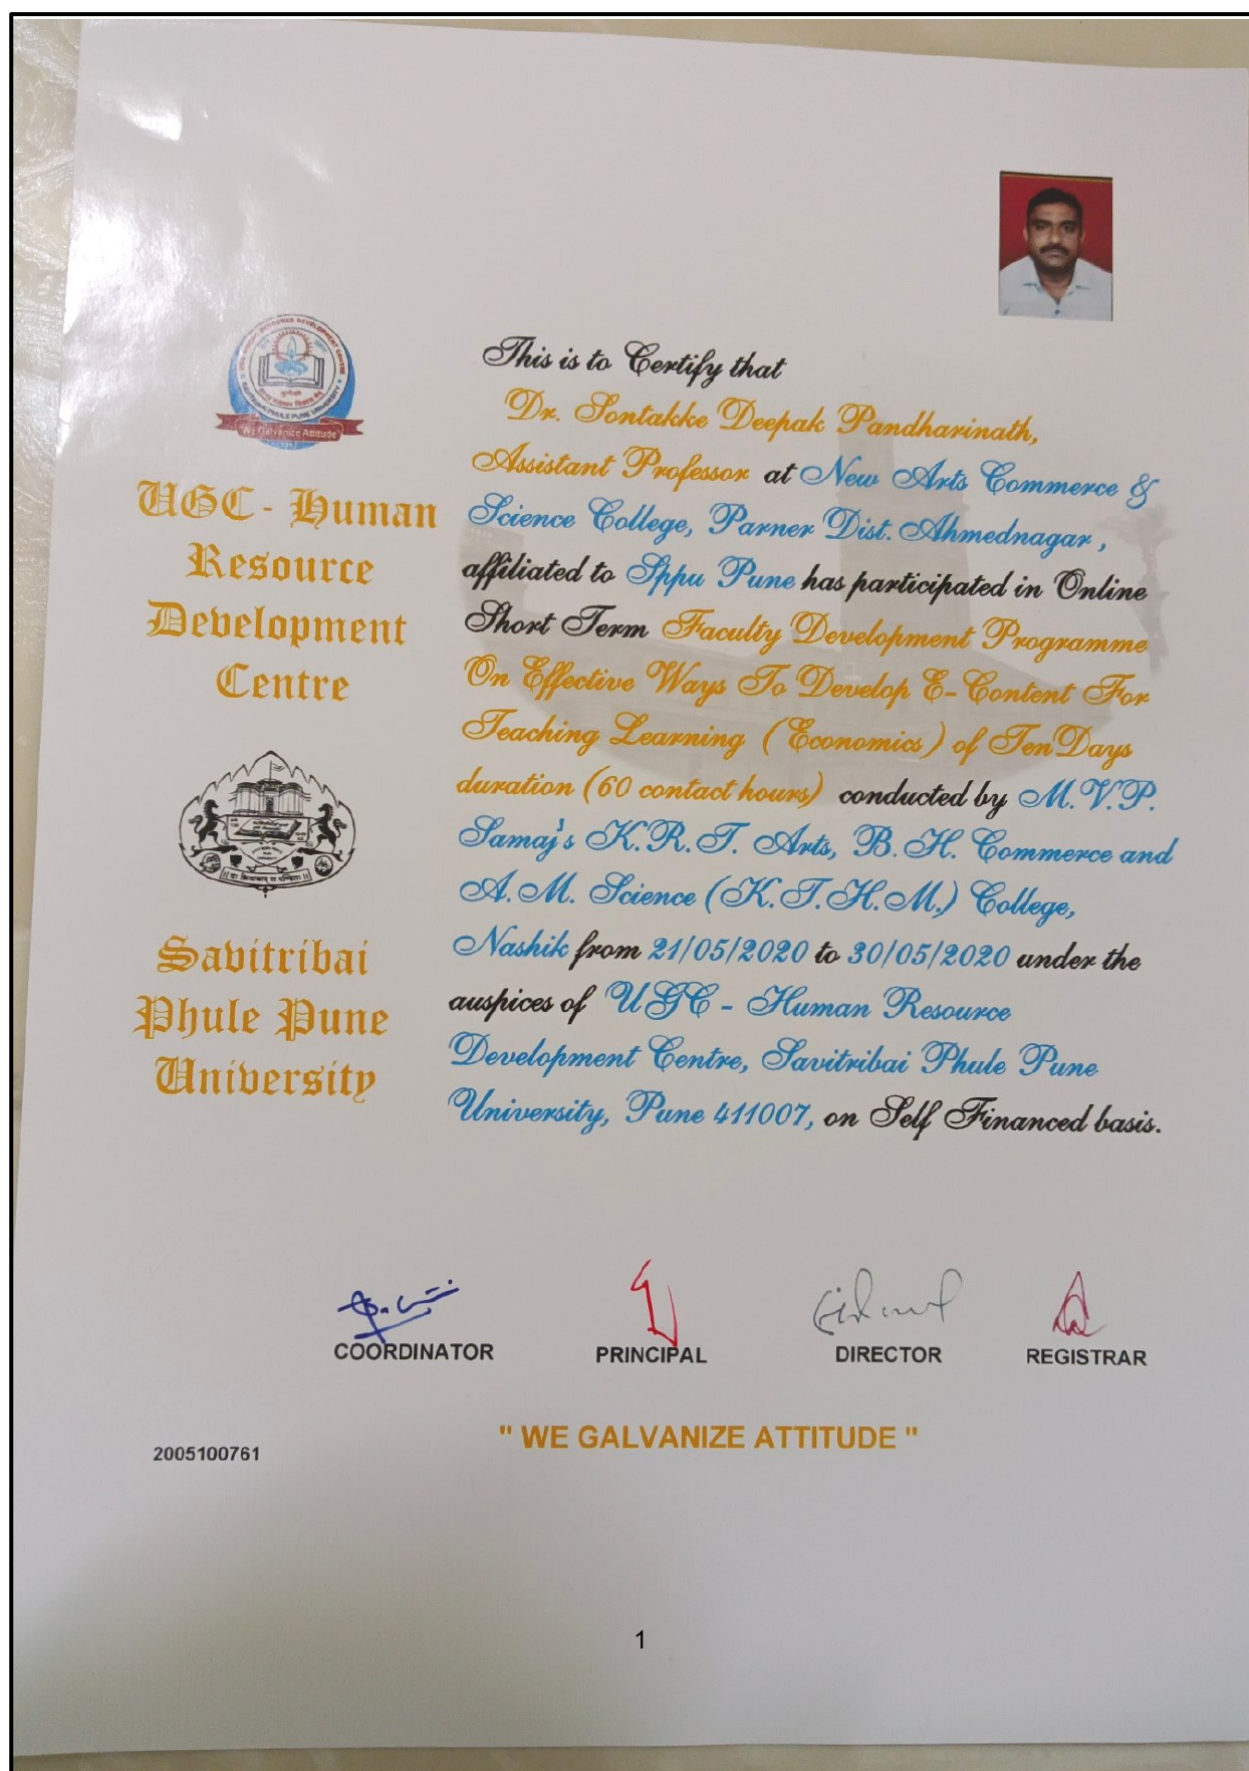 UGC - Human
Resource
Development
Centre
Savitribai
Phule Pune
University
"We Galvanize Attitude"
This is to Certify that
Dr. Sontakke Deepak Pandharinath,
Assistant Professor at New Arts Commerce &
Science College, Parner Dist. Ahmednagar ,
affiliated to Sppu Pune has participated in Online
Short Term Faculty Development Programme
On Effective Ways To Develop E-Content For
Teaching Learning (Economics) of Ten Days
duration (60 contact hours) conducted by M.V.P.
Samaj's K.R.T. Arts, B.H. Commerce and
A.M. Science (K.T.H.M.) College,
Nashik from 21/05/2020 to 30/05/2020 under the
auspices of UGC - Human Resource
Development Centre, Savitribai Phule Pune
University, Pune 411007, on Self Financed basis.
COORDINATOR PRINCIPAL DIRECTOR REGISTRAR
" WE GALVANIZE ATTITUDE "
2005100761
1